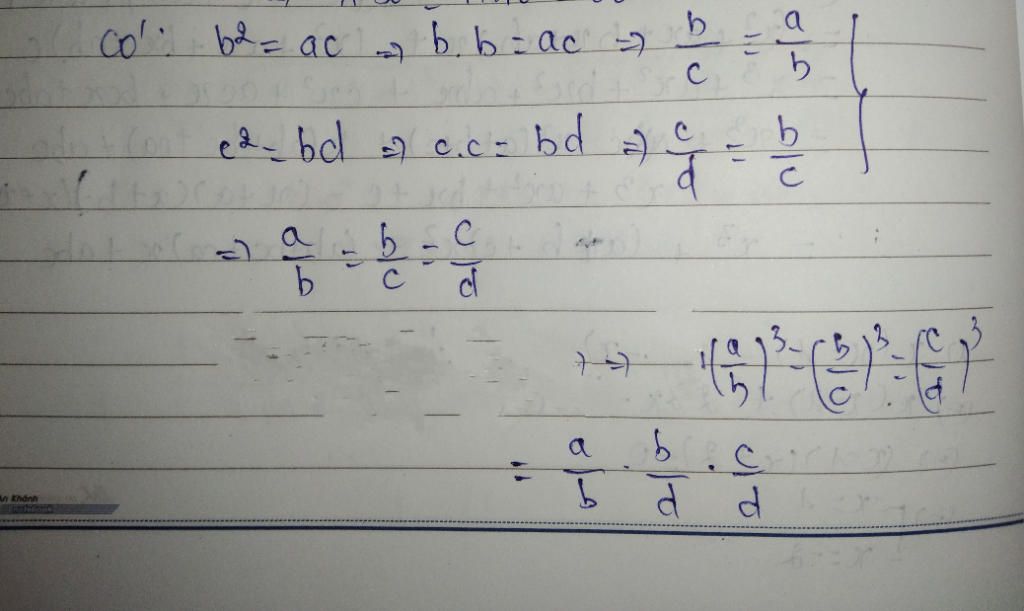 Có: b² = ac => b.b = ac => b/c = a/b
c² = bd => c.c = bd => c/d = b/c
=> a/b = b/c = c/d
=> (a/b)³ = (b/c)³ = (c/d)³
= a/b . b/d . c/d
An Khánh